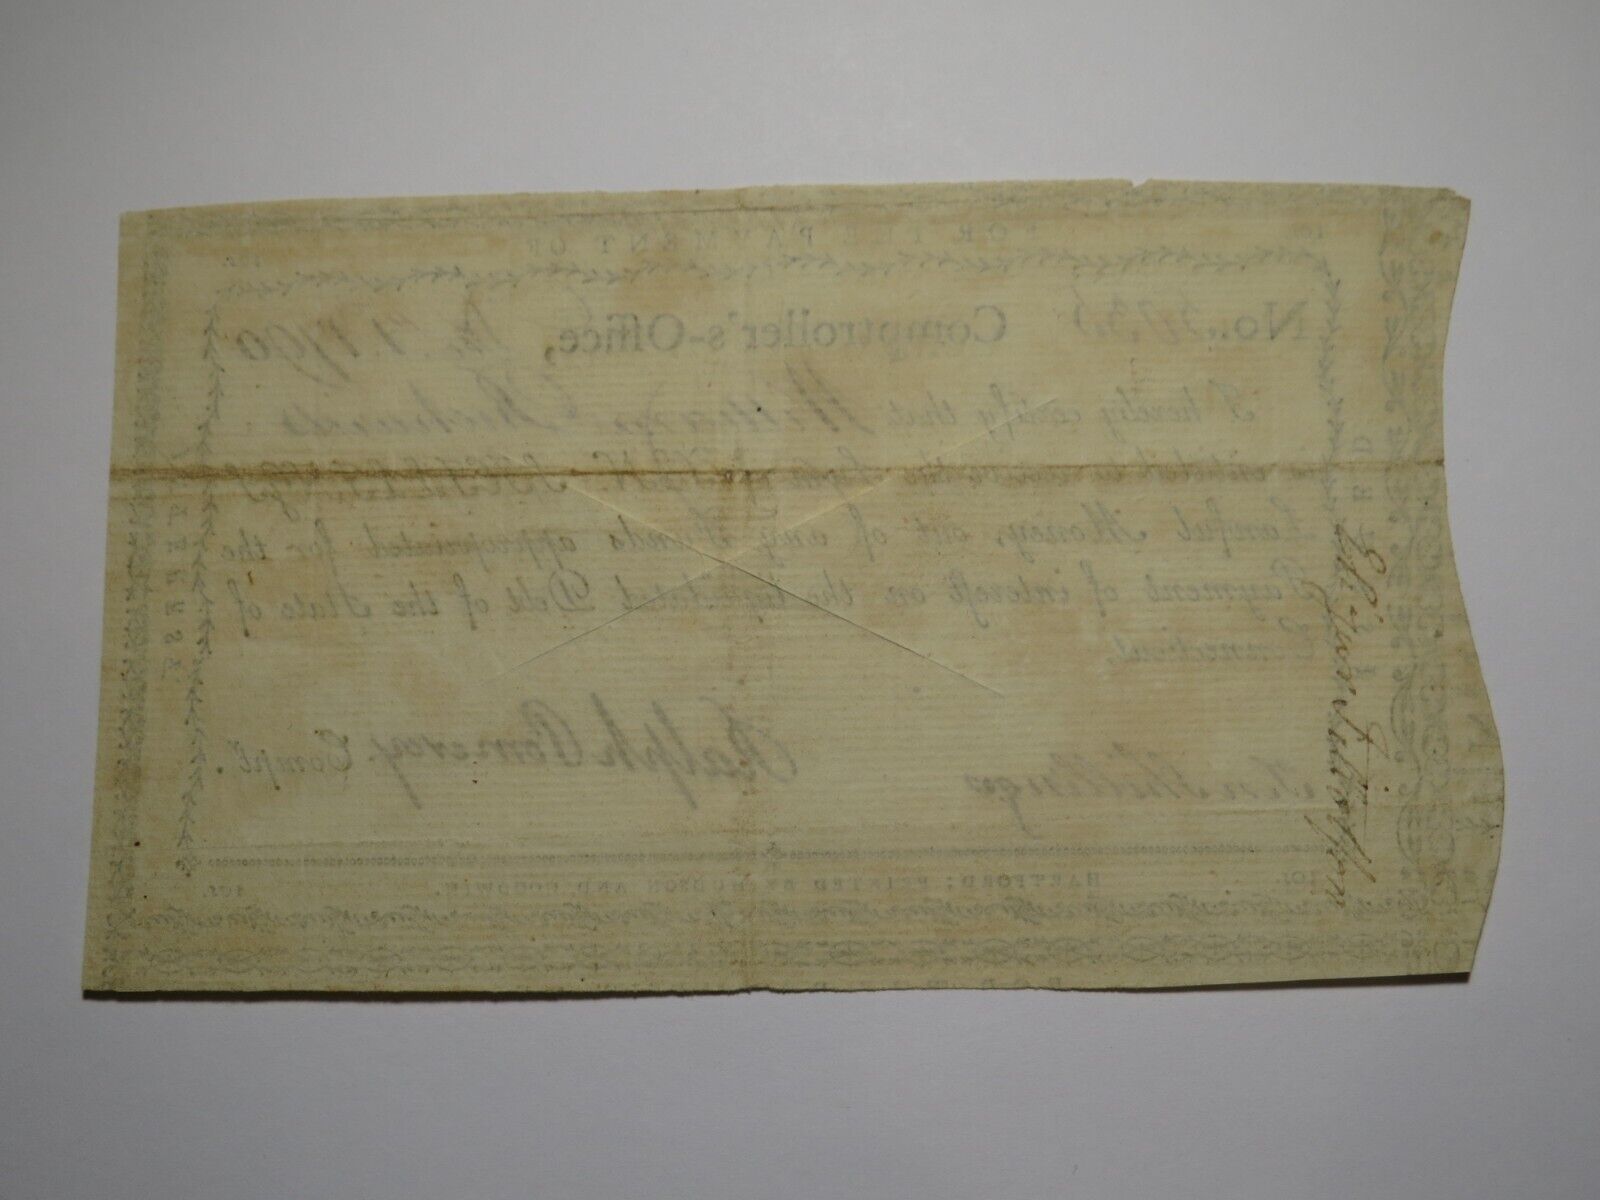 FOR THE PAYMENT OF
No. 3035 Comptroller's-Office, 1790
I hereby certify that William Richards
is entitled to receive the Sum of TEN SHILLINGS
Lawful Money, out of any Funds appropriated for the
Payment of interest on the liquidated Debt of the State of
Connecticut,
Ten Shillings Ralph Pomeroy Compt.
10s. HARTFORD; PRINTED BY HUDSON AND GOODWIN. 10s.
INTEREST